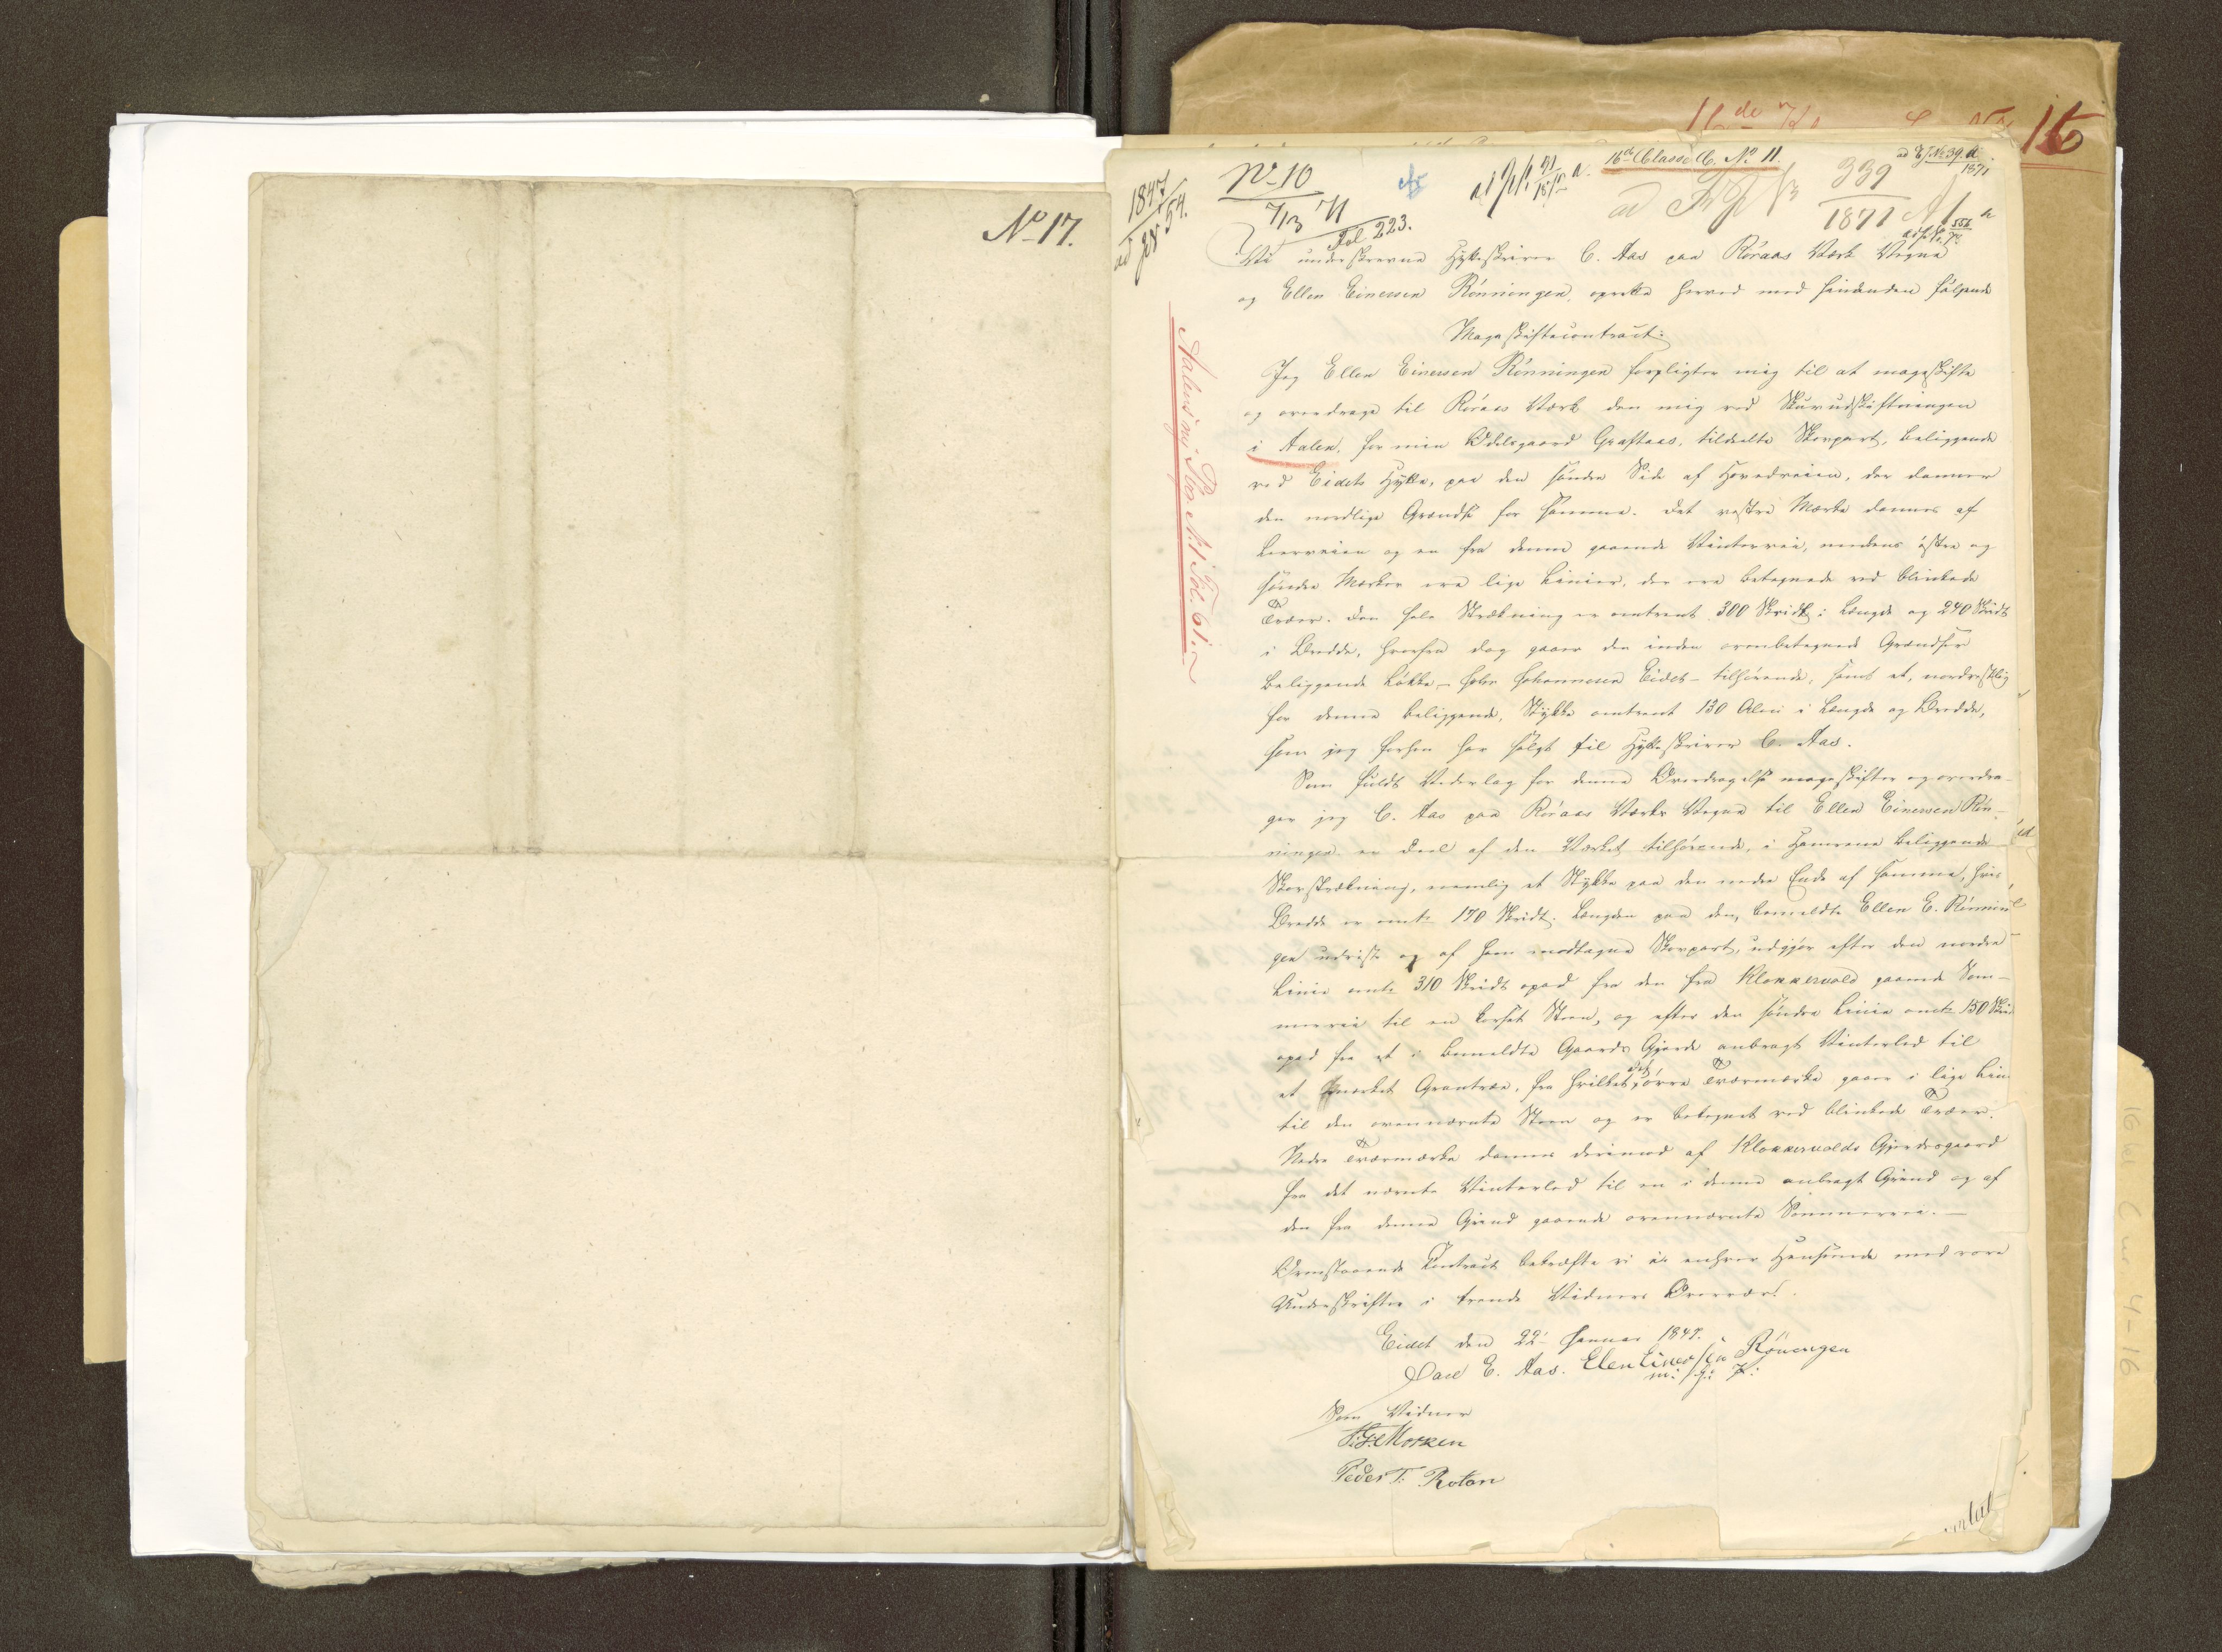 No 17.
16de
16
1847
ad 54.
No 10
7/13 71
Fol 223.
16de Classe C. No 11.
ad No 39. a
1871
339
1871
Vi underskrevne Hytteskriver C. Aas paa Röraas Værks Vegne
og Ellen Einersen Rönningen, oprette herved med hinanden fölgende
Mageskiftecontract:
Jeg Ellen Einersen Rönningen forpligter mig til at mageskifte
og overdrage til Röraas Værk den mig ved Skovudskiftningen
i Aalen, for min Odelsgaard Graftaas, tildeelte Skovpart, beliggende
ved Eidets Hytte, paa den söndre Side af Hovedveien, der danner
den nordlige Grændse for samme. Det vestre Mærke dannes af
Leerveien og en fra denne gaaende Vintervei, medens östre og
söndre Mærker ere lige Linier, der ere betegnede ved blinkede
Træer. Den hele Strækning er omtrent 300 Skridt i Længde og 240 Skridt
i Bredde, hvorfra dog gaaer den inden ovenbetegnede Grændser
beliggende Lökke – John Johannesen Eidet – tilhörende, samt et, nordvestlig
for denne beliggende, Stykke omtrent 130 Alen i Længde og Bredde,
som jeg forhen har solgt til Hytteskriver C. Aas.
Som fuldt Vederlag for denne Overdragelse mageskifter og overdra-
ger jeg C. Aas paa Röraas Værks Vegne til Ellen Einersen Rön-
ningen en Deel af den Værket tilhörende, i Hamrene beliggende
Skovstrækning, nemlig et Stykke paa den nedre Ende af samme, hvis
Bredde er omtr 170 Skridt. Længden paa den, bemeldte Ellen E. Rönnin-
gen udviste og af ham modtagne Skovpart, udgjör efter den nordre
Linie omtr 310 Skridt opad fra den fra Klokkervold gaaende Som-
mervei til en korset Steen, og efter den söndre Linie omtr 150 Skri
opad fra et i bemeldte Gaards Gjerde anbragt Vinterled til
et mærket Grantræ, fra hvilket det övre Tværmærke gaaer i lige Lin
til den ovennævnte Steen og er betegnet ved blinkede Træer.
Nedre Tværmærke dannes derimod af Klokkervolds Gjerdesgaard
fra det nævnte Vinterled til en i denne anbragt Grind og af
den fra denne Grind gaaende ovennævnte Sommervei. –
Ovenstaaende Contract bekræfte vi i enhver Henseende med vore
Underskrifter i tvende Vidners Overvær.
Eidet den 22 Januar 1847.
C. Aas. Elen Einersen Rönengen
m: f: P:
Som Vidner
Morken
Peder T. Roten
Aalens ny Pro. No 1 Fol. 61.
16 kl C nr 4-16